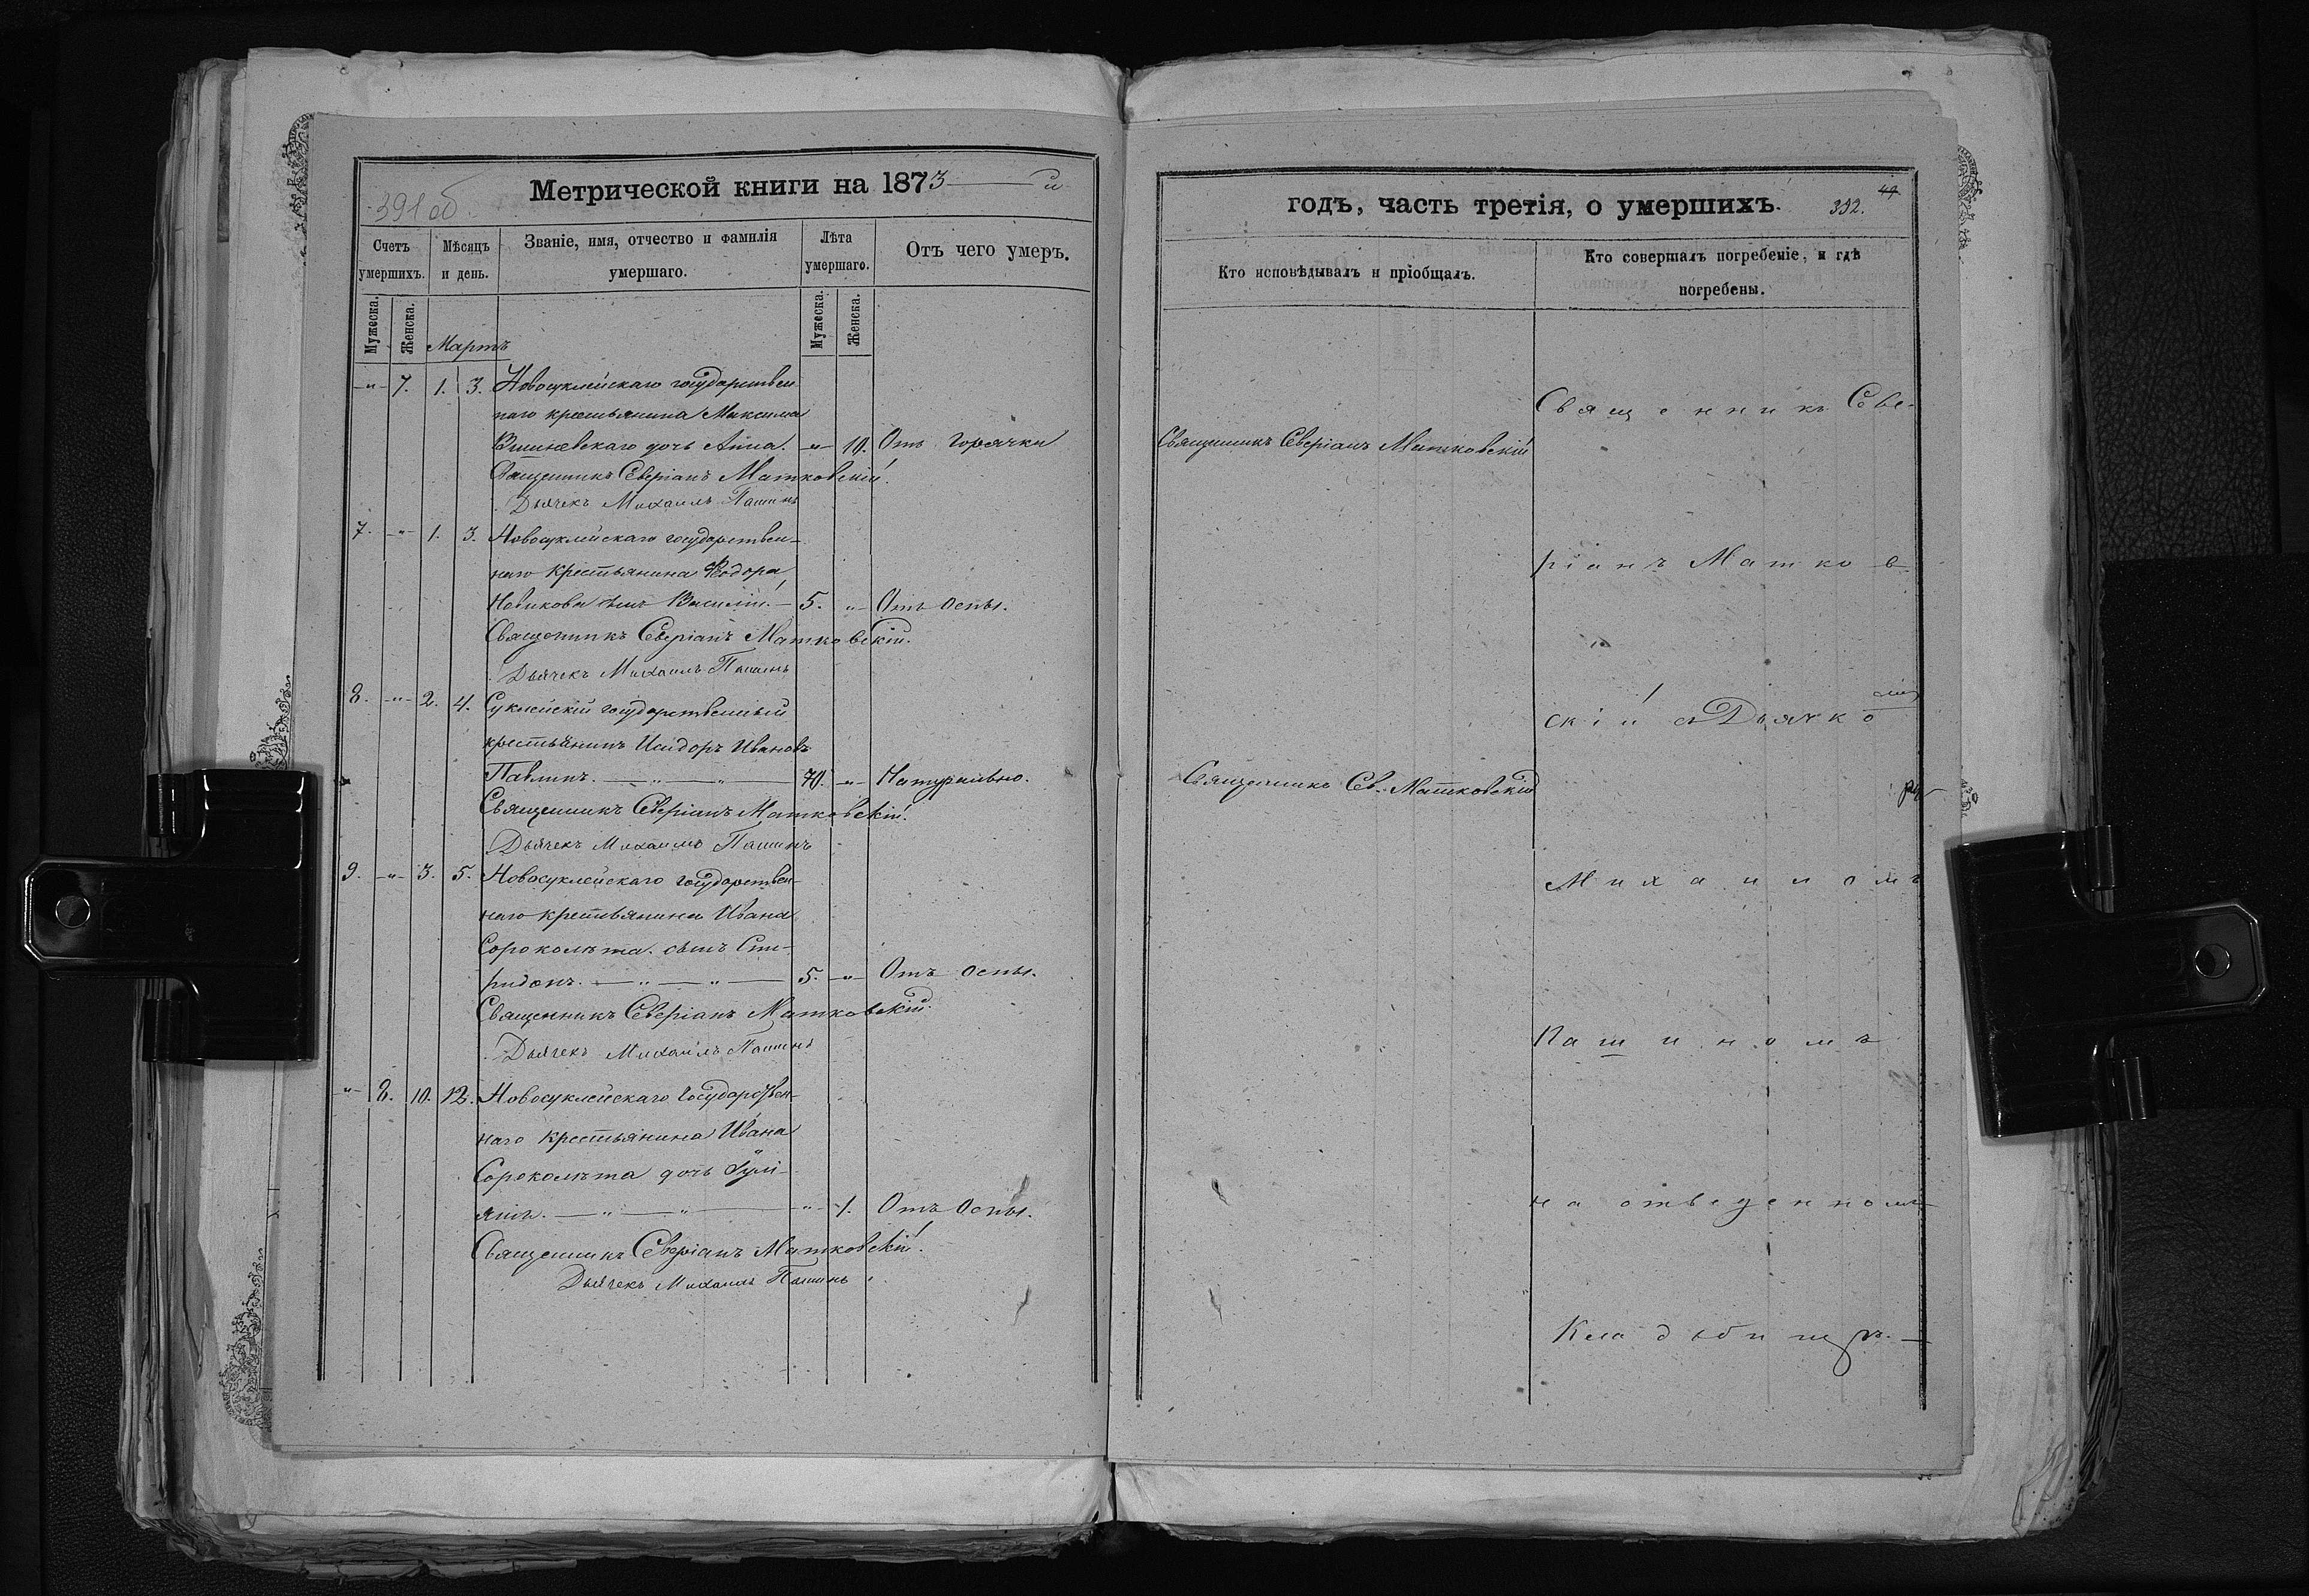 391 об.
Метрической книги на 1873 — й
Счетъ умершихъ.
Мѣсяцъ и день.
Званіе, имя, отчество и фамилія умершаго.
Лѣта умершаго.
Отъ чего умеръ.
Мужеска.
Женска.
Мартъ
Мужеска.
Женска.
-"- 7. 1. 3. Новосуклейскаго государствен
наго крестьянина Максима
Вишневскаго дочь Анна. -"- 10. Отъ горячки
Священникъ Северіанъ Матковскій.
Дьячекъ Михаилъ Пашинъ
7. -"- 1. 3. Новосуклейскаго государствен-
наго крестьянина Ѳеодора
Новикова сынъ Василій. — 5. -"- Отъ оспы.
Священникъ Северіанъ Матковскій.
Дьячекъ Михаилъ Пашинъ
8. -"- 2. 4. Суклейскій государственный
крестьянинъ Исидоръ Ивановъ
Павлинъ. — " — " — 70. -"- Натурально.
Священникъ Северіанъ Матковскій.
Дьячекъ Михаилъ Пашинъ
9. -"- 3. 5. Новосуклейскаго государствен-
наго крестьянина Ивана
Сороколѣта сынъ Спи-
ридонъ. — " — " — 5. -"- Отъ оспы.
Священникъ Северіанъ Матковскій.
Дьячекъ Михаилъ Пашинъ
-"- 8. 10. 12. Новосуклейскаго государствен-
наго крестьянина Ивана
Сороколѣта дочь Іулі-
янія. — " — " — -"- 1. Отъ оспы.
Священникъ Северіанъ Матковскій.
Дьячекъ Михаилъ Пашинъ
годъ, часть третія, о умершихъ.
392.
49
Кто исповѣдывалъ и пріобщалъ.
Кто совершалъ погребеніе, и гдѣ погребены.
Священникъ Северіанъ Матковскій
Священникъ Св. Матковскій
Священникъ Севе-
ріанъ Матков
скій съ Дьячко
мъ
Михаиломъ
Пашиномъ
на отведенномъ
Кладбищѣ. —